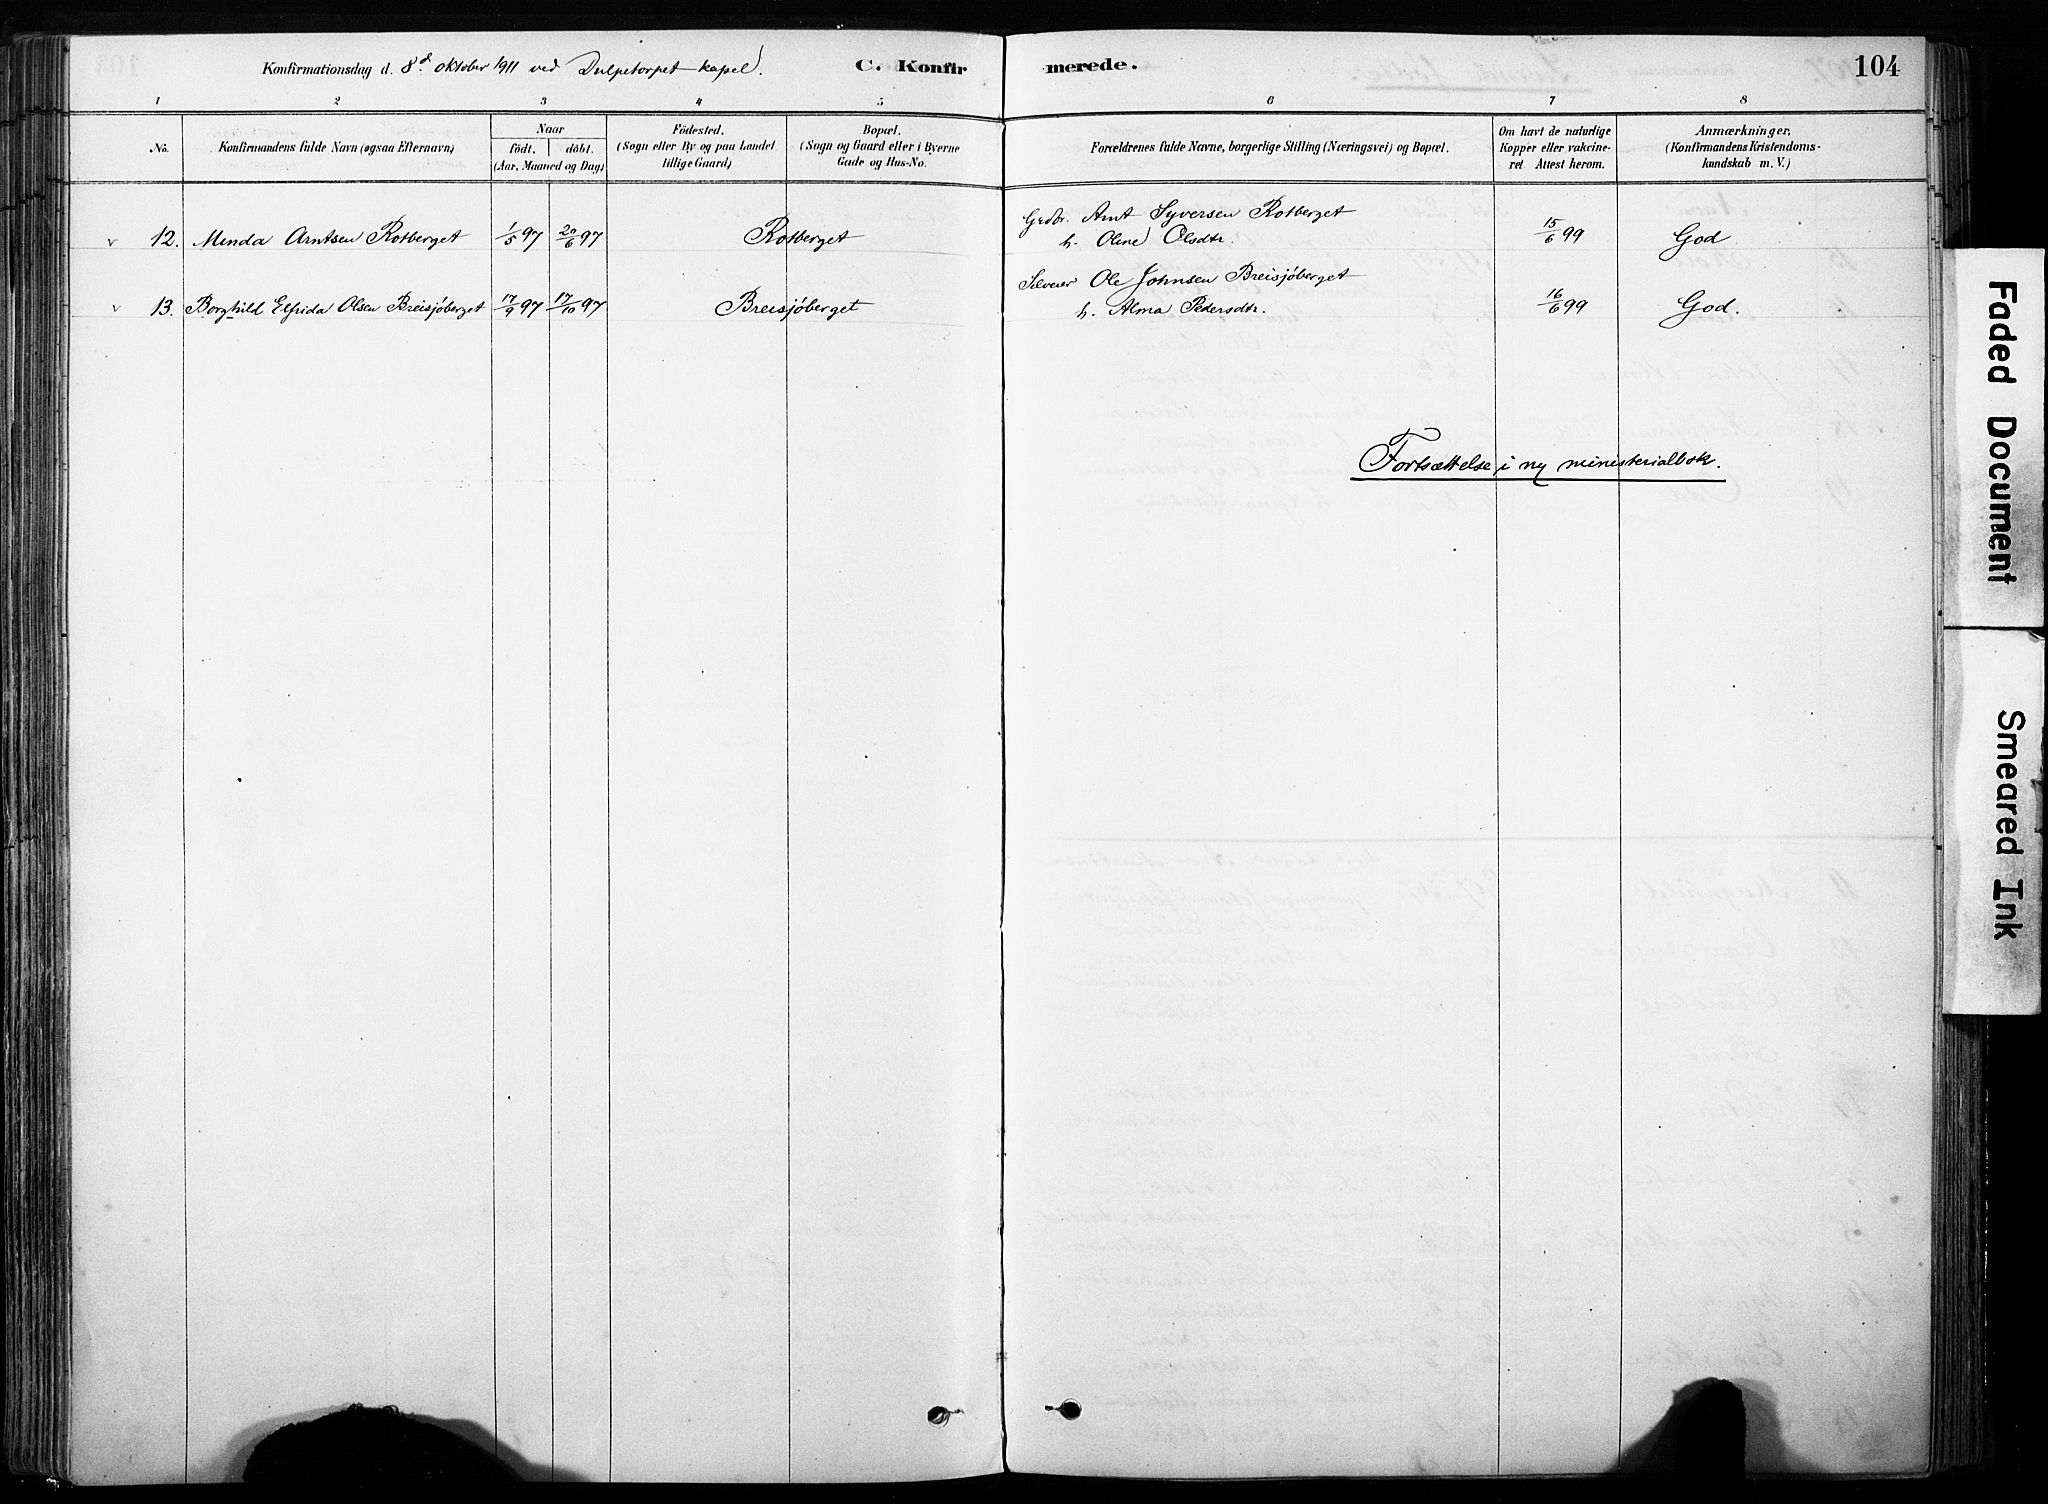 Konfirmationsdag d. 8de oktober 1911 ved Dulpetorpet kapel.
C. Konfirmerede.
104
1 2 3 4 5 6 7 8
No.
Konfirmandens fulde Navn (ogsaa Efternavn)
Naar
födt. döbt.
(Aar, Maaned og Dag)
Födested.
(Sogn eller By og paa Landet
tillige Gaard)
Bopæl.
(Sogn og Gaard eller i Byerne
Gade og Hus-No.
Forældrenes fulde Navne, borgerlige Stilling (Næringsvei) og Bopæl.
Om havt de naturlige
Kopper eller vakcine-
ret Attest herom.
Anmærkninger,
(Konfirmandens Kristendoms-
kundskab m. V.)
v 12. Minda Arntsen Rotberget 1/5 97 20/6 97 Rotberget
Grdbr. Arnt Syversen Rotberget
h. Oline Olsdtr. 15/6 99 God
v 13. Borghild Elfrida Olsen Breisjøberget 17/9 97 17/10 97 Breisjøberget
Selveier Ole Johnsen Breisjøberget
h. Alma Pedersdtr. 16/6 99 God.
Fortsættelse i ny ministerialbok.
Faded Document
Smeared Ink